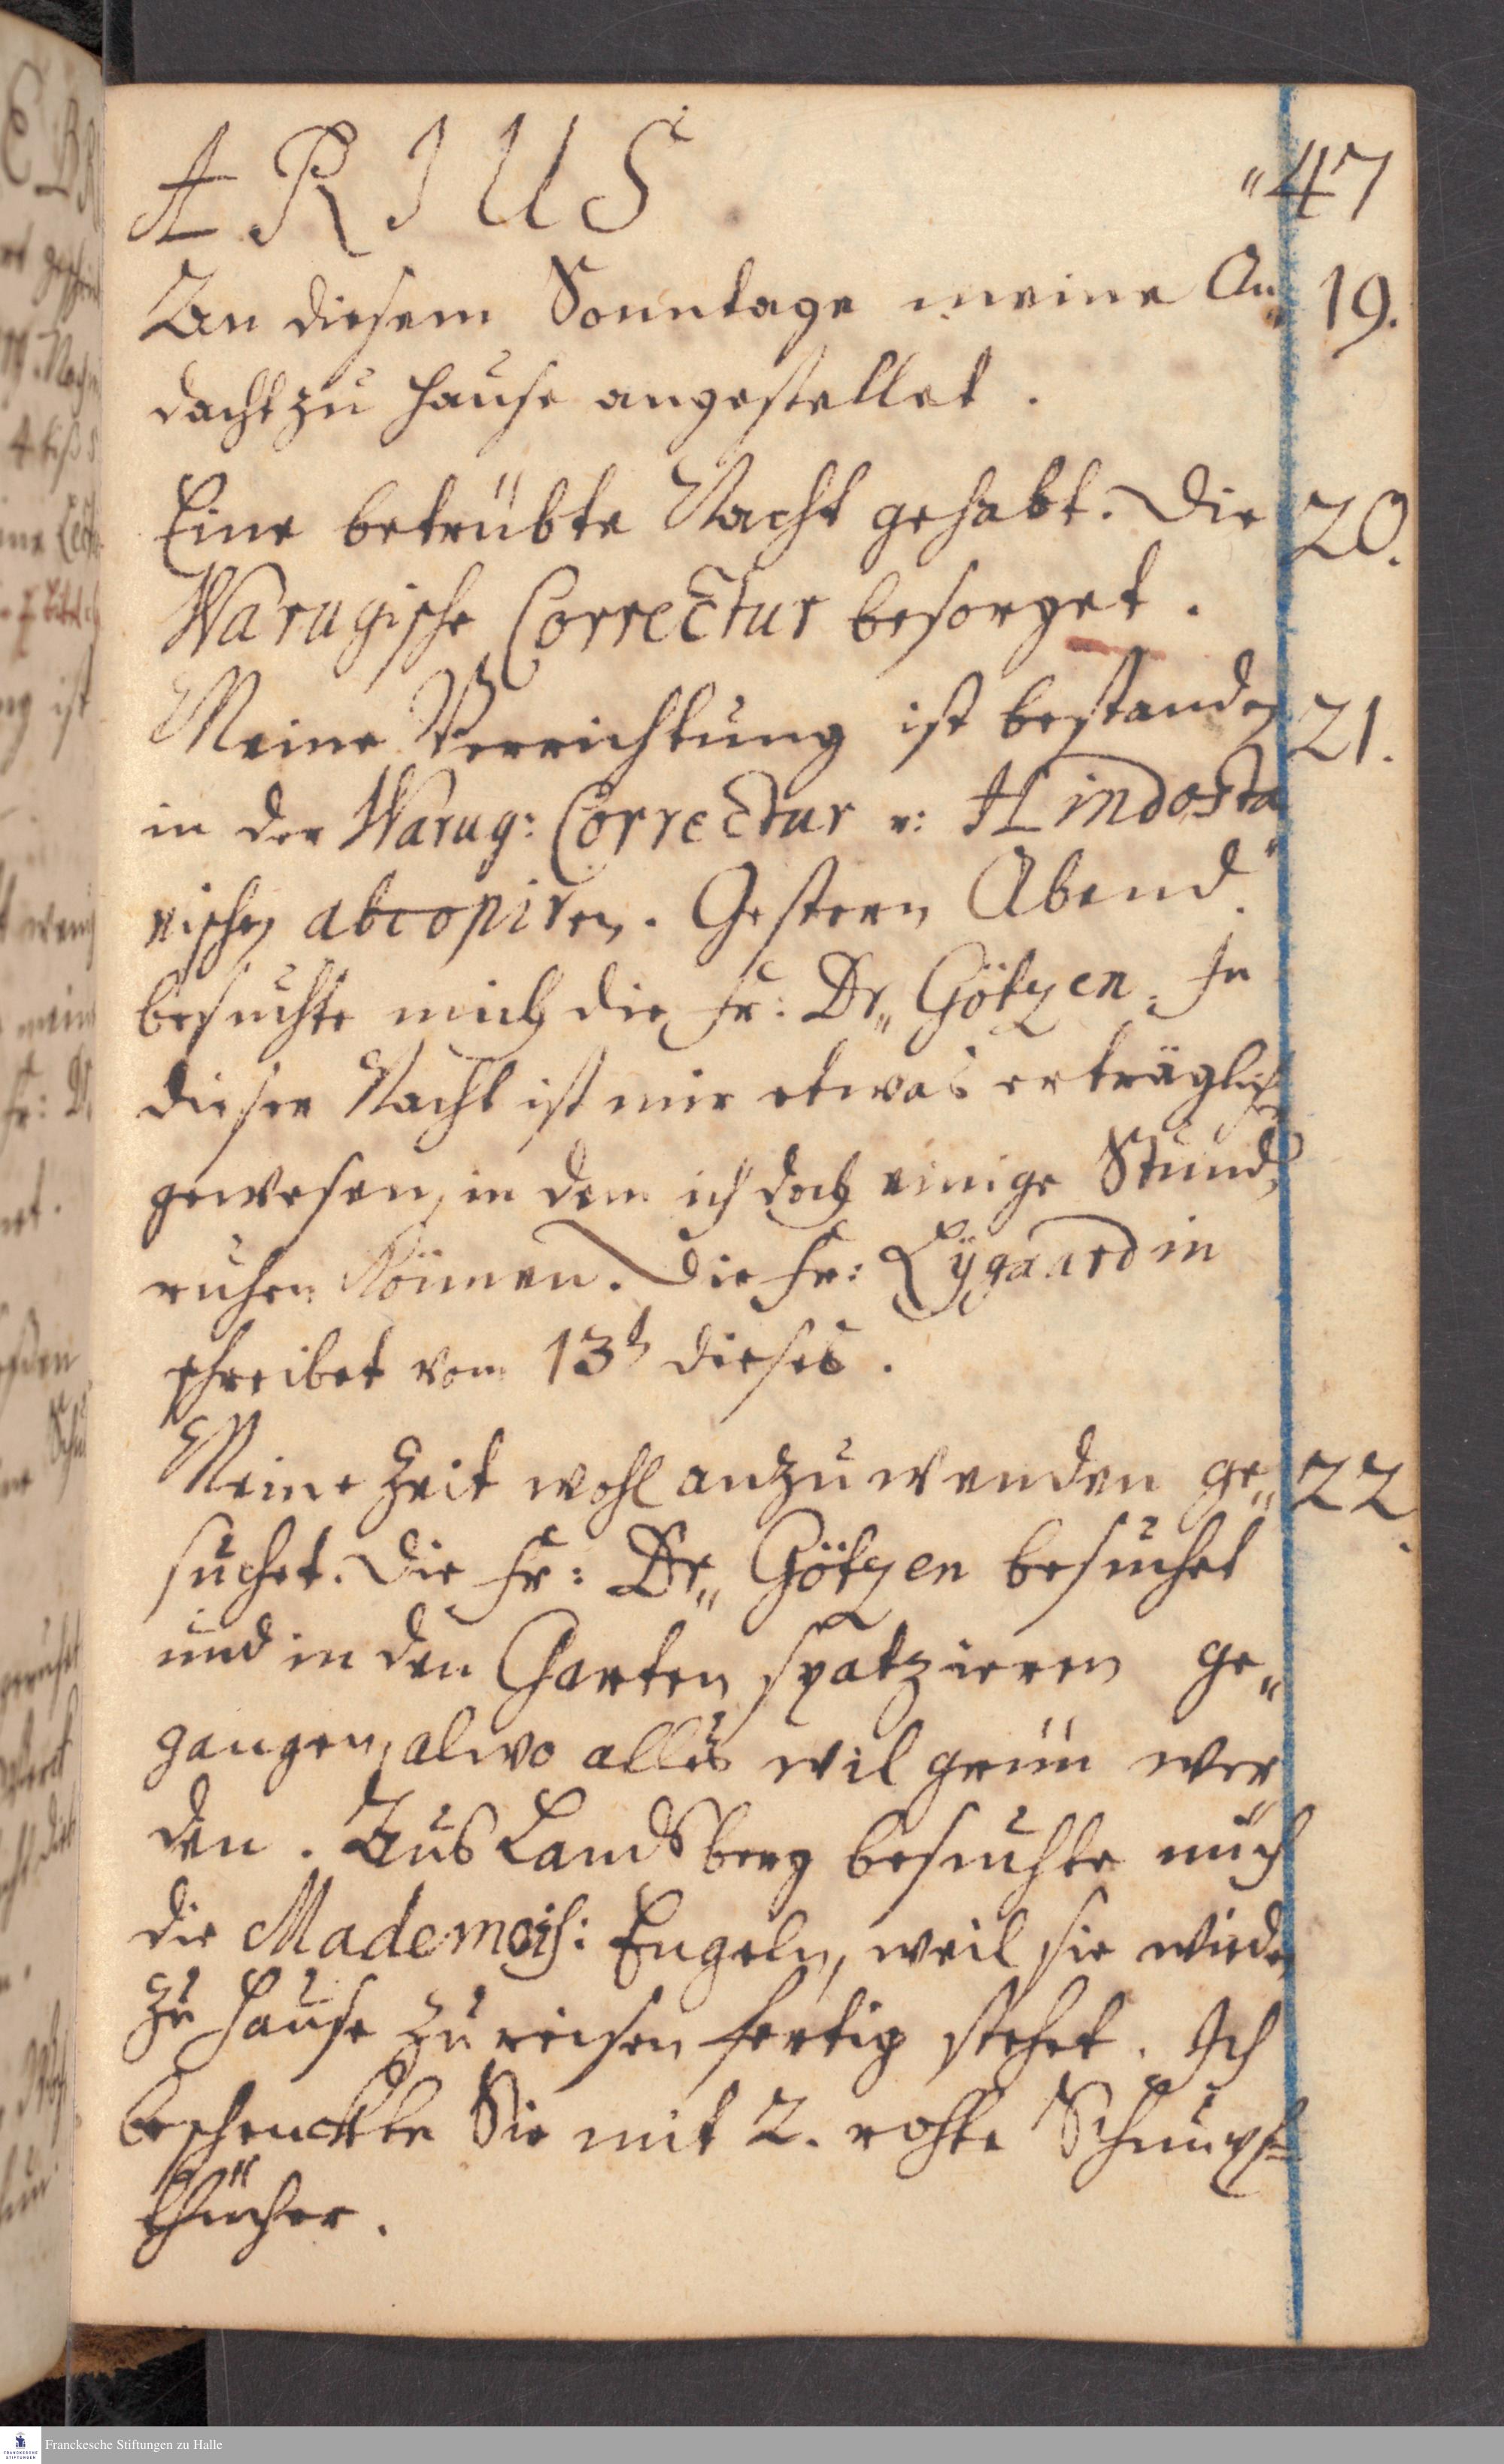 A R I U S "47
An diesem Sonntage meine An„ 19.
dacht zu Hause angestellet.
Eine betrübte Nacht gehabt. Die 20.
Warugische Correctur besorget.
Meine Verrichtung ist bestanden 21.
in der Warug: Correctur u: Hindosta„
nischen abcopiren. Gestern Abend
besuchte mich die Fr: Dr„ Götzen. In
dieser Nacht ist mir etwas erträglicher
gewesen, in dem ich doch einige Stunden
ruhen können. Die Fr: Lÿgaardin
schreibet vom 13t dieses.
Meine Zeit wohl anzuwenden ge„ 22.
suchet. Die Fr: Dr„ Götzen besuchet
und in den Garten spatzieren ge„
gangen, alwo alles wil grün wer„
den. Aus Landsberg besuchte mich
die Mademois: Engeln, weil sie wieder
zu Hause zu reisen fertig stehet. Ich
beschenckte Sie mit 2. rohte Schnupf„
thücher.
Franckesche Stiftungen zu Halle